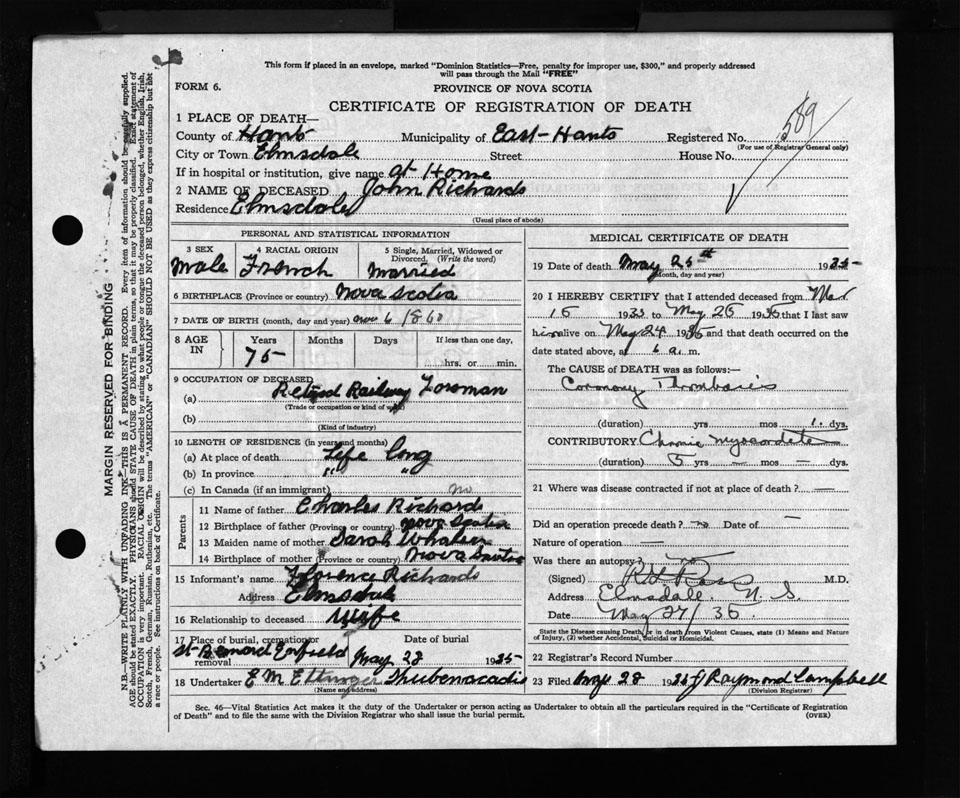 This form if placed in an envelope, marked "Dominion Statistics—Free, penalty for improper use, $300," and properly addressed
will pass through the Mail "FREE"
FORM 6.
PROVINCE OF NOVA SCOTIA
CERTIFICATE OF REGISTRATION OF DEATH
1 PLACE OF DEATH—
County of Hants Municipality of East-Hants Registered No. 589
(For use of Registrar General only)
City or Town Elmsdale Street House No.
If in hospital or institution, give name at Home
2 NAME OF DECEASED John Richards
Residence Elmsdale
(Usual place of abode)
PERSONAL AND STATISTICAL INFORMATION
3 SEX Male
4 RACIAL ORIGIN French
5 Single, Married, Widowed or Divorced. (Write the word) Married
6 BIRTHPLACE (Province or country) Nova Scotia
7 DATE OF BIRTH (month, day and year) 6 1860
8 AGE IN Years Months Days If less than one day,
75 hrs. or min.
9 OCCUPATION OF DECEASED
(a) Retired Railway Foreman
(Trade or occupation or kind of work)
(b)
(Kind of industry)
10 LENGTH OF RESIDENCE (in years and months)
(a) At place of death Life long
(b) In province " "
(c) In Canada (if an immigrant) no
Parents
11 Name of father Charles Richards
12 Birthplace of father (Province or country) Nova Scotia
13 Maiden name of mother Sarah Whalen
14 Birthplace of mother (Province or country) Nova Scotia
15 Informant's name Florence Richards
Address Elmsdale
16 Relationship to deceased Wife
17 Place of burial, cremation or removal St Bernard Enfield
Date of burial May 28 1935
18 Undertaker E M Ettinger Shubenacadie
(Name and address)
MEDICAL CERTIFICATE OF DEATH
19 Date of death May 25th 1935
(Month, day and year)
20 I HEREBY CERTIFY that I attended deceased from Mar
15 1933 to May 25 1935 that I last saw
him alive on May 24 1935 and that death occurred on
date stated above, at 6 a. m.
The CAUSE of DEATH was as follows:—
Coronary Thrombosis
(duration) yrs mos 1 dys.
CONTRIBUTORY Chronic myocarditis
(duration) 5 yrs — mos — dys.
21 Where was disease contracted if not at place of death? —
Did an operation precede death? no Date of —
Nature of operation —
Was there an autopsy? no
(Signed) M.D.
Address Elmsdale. N. S.
Date May 27/35
State the Disease causing Death, or in death from Violent Causes, state (1) Means and Nature
of Injury, (2) whether Accidental, Suicidal or Homicidal.
22 Registrar's Record Number
23 Filed May 28 1935 J Raymond Campbell
(Division Registrar)
Sec. 46—Vital Statistics Act makes it the duty of the Undertaker or person acting as Undertaker to obtain all the particulars required in the "Certificate of Registration
of Death" and to file the same with the Division Registrar who shall issue the burial permit.
(OVER)
MARGIN RESERVED FOR BINDING
N.B.—WRITE PLAINLY WITH UNFADING INK—THIS IS A PERMANENT RECORD. Every item of information should be carefully supplied.
AGE should be stated EXACTLY. PHYSICIANS should STATE CAUSE OF DEATH in plain terms, so that it may be properly classified. Exact statement of
OCCUPATION is very important. RACIAL ORIGIN will be described by stating to what people or tongue the deceased person belonged, whether English, Irish,
Scotch, French, German, Russian, Ruthenian, etc. The terms "AMERICAN" or "CANADIAN" SHOULD NOT BE USED as they express citizenship but not
a race or people. See instructions on back of Certificate.